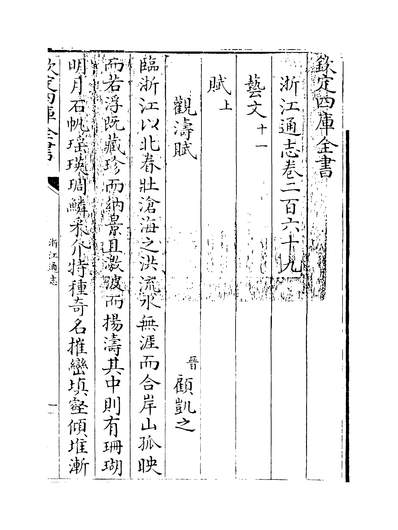 欽定四庫全書
浙江通志卷二百六十九
藝文十一
賦上
觀濤賦 晉 顧凱之
臨浙江以北眷壯滄海之洪流水無涯而合岸山孤映
而若浮既藏珍而納景且激波而揚濤其中則有珊瑚
明月石帆瑤瑛琱鱗采介特種奇名摧巒填壑傾堆漸
欽定四庫全書
浙江通志
一